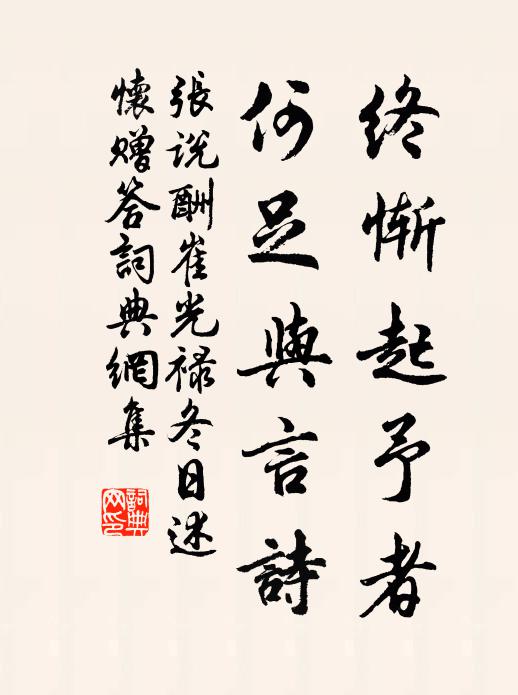 终惭起予者
何足與言詩
張説酬崔光禄冬日述
懷贈答詞典網集
詞典
网印